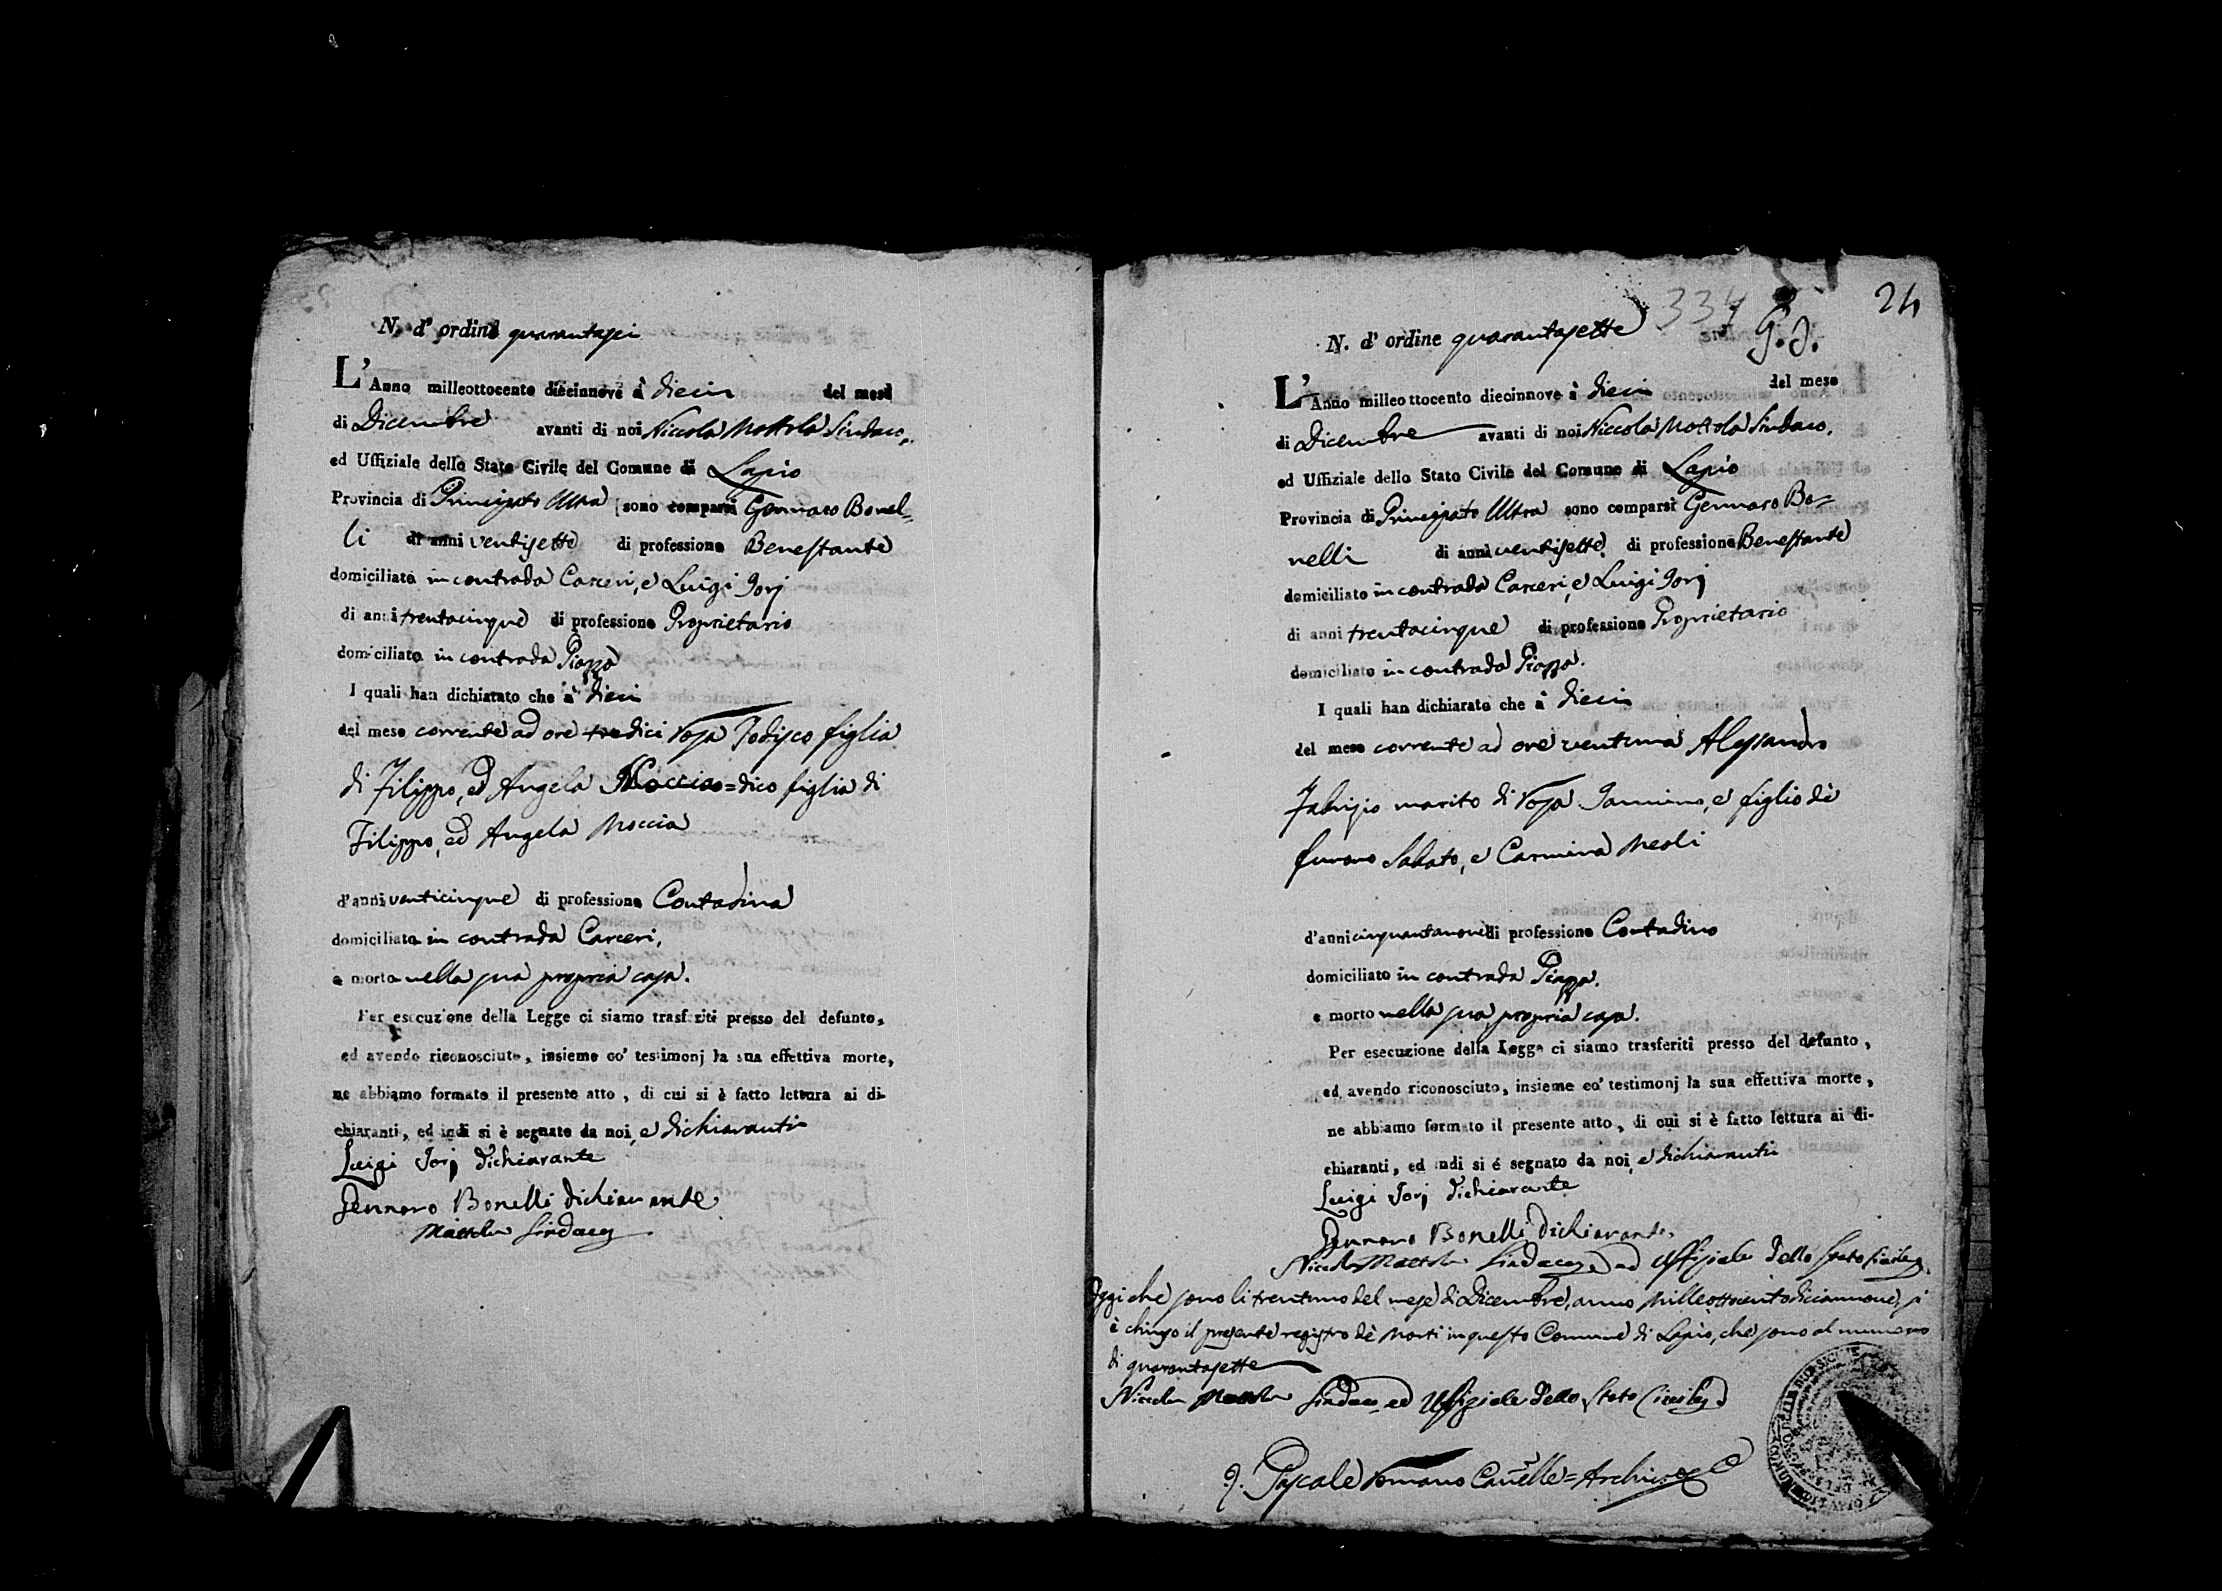 N. d' ordine quarantasei
L'Anno milleottocento diecinnove à dieci del mese
di Dicembre avanti di noi Niccola Mottola Sindaco,
ed Uffiziale dello Stato Civile del Comune di Lapio
Provincia di Principato Ultra sono comparsi Gennaro Bonel=
li di anni ventisette di professione Benestante
domiciliato in contrada Carceri, e Luigi Iorj
di anni trentacinque di professione Proprietario
domiciliato in contrada Piazza
I quali han dichiarato che à dieci
del mese corrente ad ore tredici Rosa Todisco figlia
di Filippo, ed Angela Moccia=dico figlia di
Filippo, ed Angela Moccia
d'anni venticinque di professione Contadina
domiciliata in contrada Carceri,
e morta nella sua propria casa.
Per esecuzione della Legge ci siamo trasferiti presso del defunto,
ed avendo riconosciuto, insieme co' testimonj la sua effettiva morte,
ne abbiamo formato il presente atto, di cui si è fatto lettura ai di-
chiaranti, ed indi si è segnato da noi, e dichiaranti
Luigi Iorj dichiarante
Gennaro Bonelli dichiarante
Mottola Sindaco
334
24
G. J.
N. d' ordine quarantasette
L'Anno milleottocento diecinnove à dieci del mese
di Dicembre avanti di noi Niccola Mottola Sindaco,
ed Uffiziale dello Stato Civile del Comune di Lapio
Provincia di Principato Ultra sono comparsi Gennaro Bo=
nelli di anni ventisette di professione Benestante
domiciliato in contrada Carceri, e Luigi Iorj
di anni trentacinque di professione Proprietario
domiciliato in contrada Piazza.
I quali han dichiarato che à dieci
del mese corrente ad ore ventuna Alessandro
Fabrizio marito di Rosa Iannino, e figlio dè
furono Sabato, e Carmina Meoli
d'anni cinquantanove di professione Contadino
domiciliato in contrada Piazza.
e morto nella sua propria casa.
Per esecuzione della Legge ci siamo trasferiti presso del defunto,
ed avendo riconosciuto, insieme co' testimonj la sua effettiva morte,
ne abbiamo formato il presente atto, di cui si è fatto lettura ai di-
chiaranti, ed indi si é segnato da noi, e dichiaranti
Luigi Iorj dichiarante
Gennaro Bonelli dichiarante.
Niccola Mottola Sindaco, ed Uffiziale dello Stato Civile
Oggi che sono li trentuno del mese di Dicembre, anno Milleottocentodiciannove, si
è chiuso il presente registro dè Morti in questo Comune di Lapio, che sono al numero
di quarantasette
Niccola Mottola Sindaco, ed Uffiziale dello Stato Civile
Pascale Romano